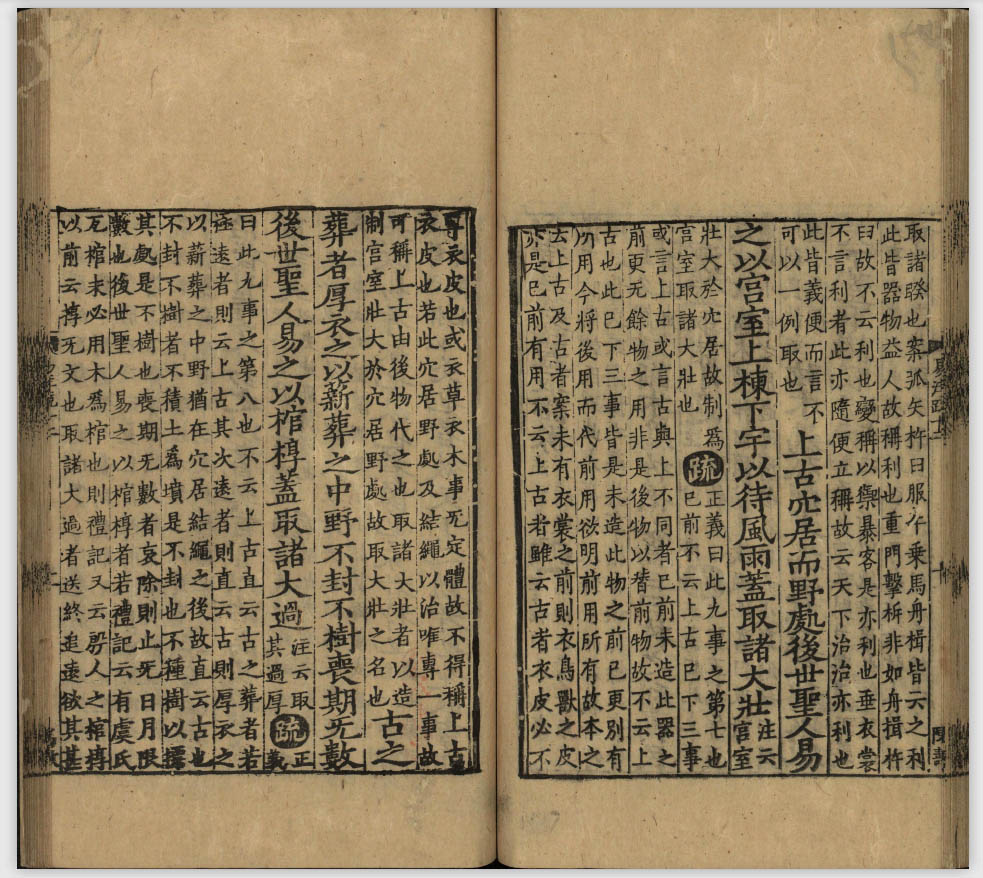 取諸睽也案弧矢杵臼服午乘馬舟楫皆云之利
此皆器物益人故稱利也重門擊柝非如舟楫杵
臼故不云利也變稱以禦暴客是亦利也垂衣裳
不言利者此亦隨便立稱故云天下治治亦利也
此皆義便而言不
可以一例取也
上古穴居而野處後世聖人易
之以宮室上棟下宇以待風雨蓋取諸大壯
注云
宮室
壯大於穴居故制爲
宮室取諸大壯也
疏
正義曰此九事之第七也
已前不云上古已下三事
或言上古或言古與上不同者已前未造此器之
前更无餘物之用非是後物以替前物故不云上
古也此已下三事皆是未造此物之前已更別有
所用今將後用而代前用欲明前用所有故本之
去上古及古者案未有衣裳之前則衣鳥獸之皮
亦是已前有用不云上古者雖云古者衣皮必不
專衣皮也或衣草衣木事无定體故不得稱上古
衣皮也若此穴居野處及結繩以治唯專一事故
可稱上古由後物代之也取諸大壯者以造
制宮室壯大於穴居野處故取大壯之名也
古之
葬者厚衣之以薪葬之中野不封不樹喪期无數
後世聖人易之以棺椁蓋取諸大過
注云取
其過厚
疏
正
義
曰此九事之第八也不云上古直云古之葬者若
極遠者則云上古其次遠者則直云古則厚衣之
以薪葬之中野猶在穴居結繩之後故直云古也
不封不樹者不積土爲墳是不封也不種樹以摽
其處是不樹也喪期无數者哀除則止无日月限
數也後世聖人易之以棺椁者若禮記云有虞氏
瓦棺未必用木爲棺也則禮記又云殷人之棺椁
以前云椁无文也取諸大過者送終追遠欲其甚